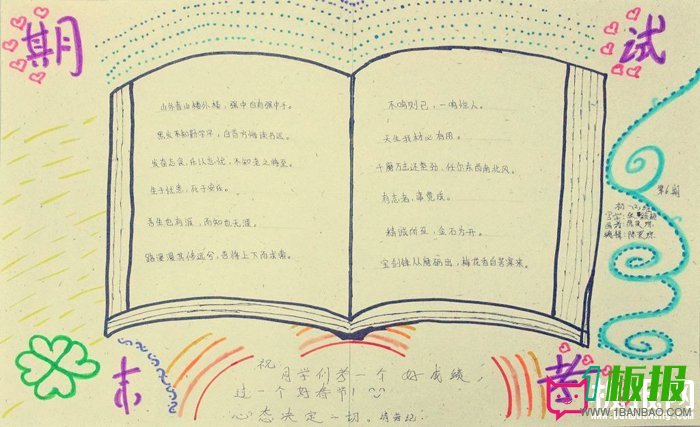 期
试
山外青山楼外楼，强中自有强中手。
黑发不知勤学早，白首方悔读书迟。
发奋忘食，乐以忘忧，不知老之将至。
生于忧患，死于安乐。
吾生也有涯，而知也无涯。
路漫漫其修远兮，吾将上下而求索。
不鸣则已，一鸣惊人。
天生我材必有用。
千磨万击还坚劲，任尔东西南北风。
有志者，事竟成。
精诚所至，金石为开。
宝剑锋从磨砺出，梅花香自苦寒来。
第6期
末
考
祝
同学们考一个好成绩，
过一个好春节！
心态决定一切。请谨记：
1板报
WWW.1BANBAO.COM